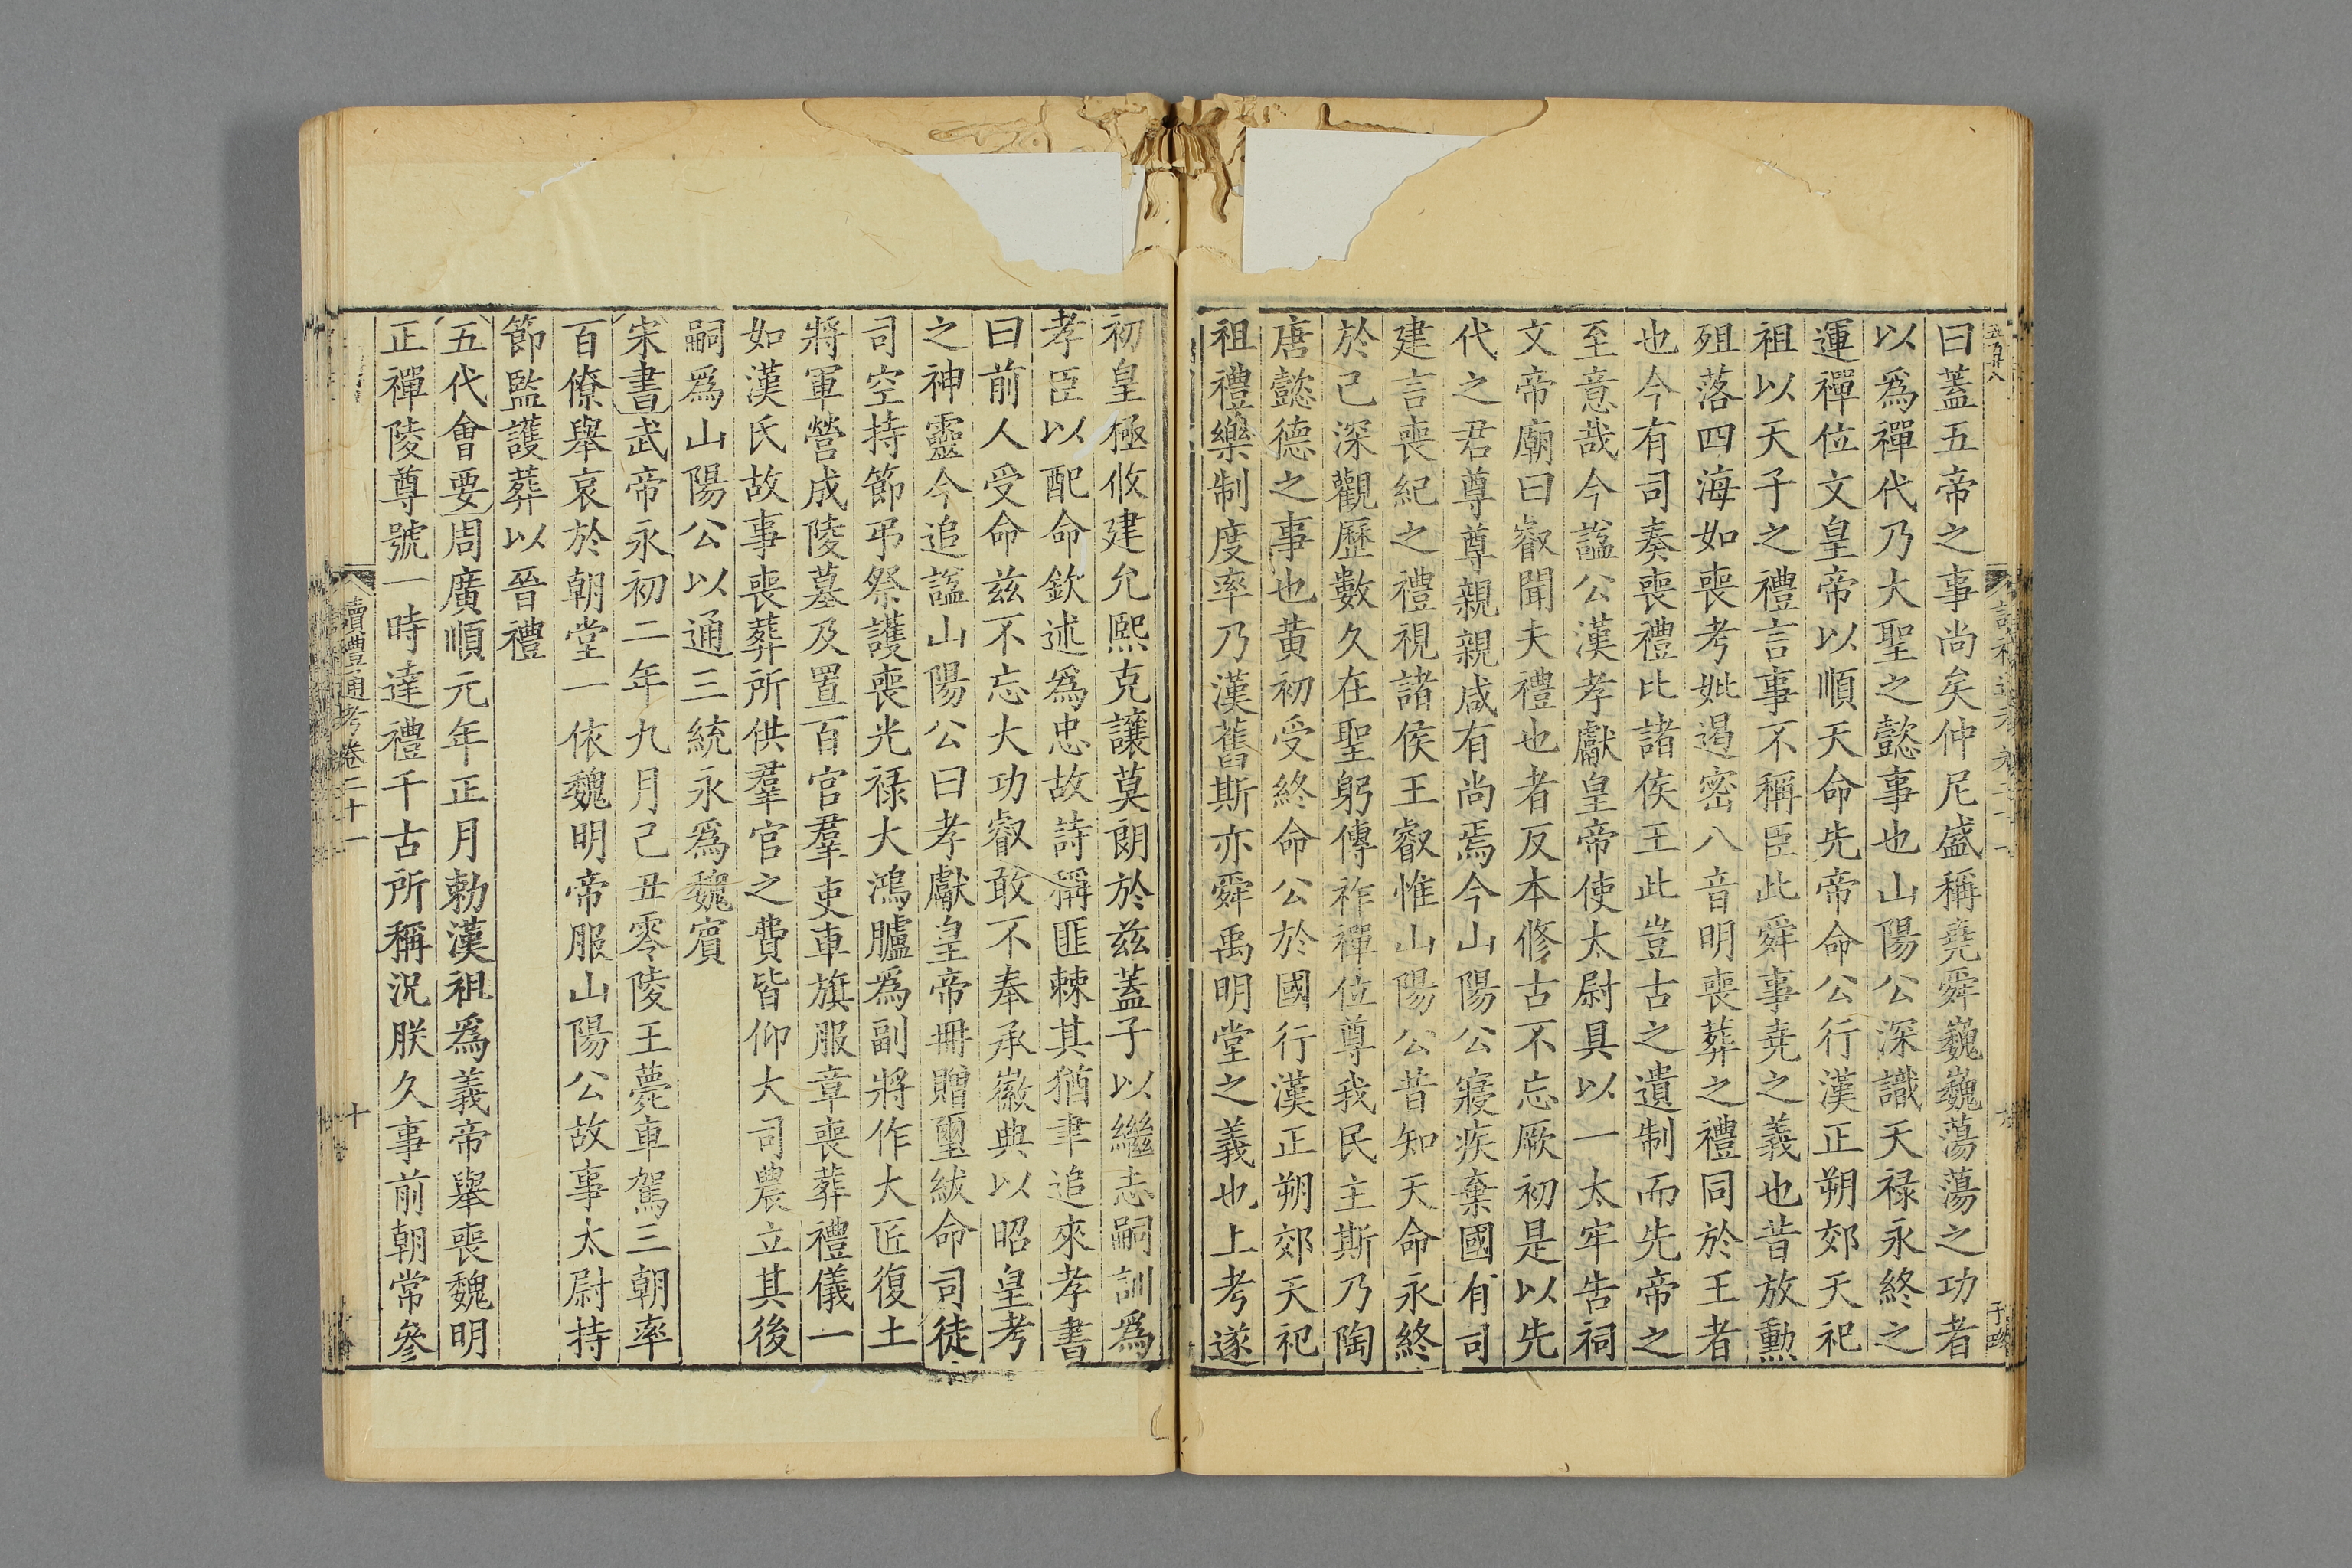 曰蓋五帝之事尚矣仲尼盛稱堯舜巍巍蕩蕩之功者
以爲禪代乃大聖之懿事也山陽公深識天禄永終之
運禪位文皇帝以順天命先帝命公行漢正朔郊天祀
祖以天子之禮言事不稱臣此舜事堯之義也昔放勳
殂落四海如喪考妣遏密八音明喪葬之禮同於王者
也今有司奏喪禮比諸侯王此豈古之遺制而先帝之
至意哉今諡公漢孝獻皇帝使太尉具以一太牢告祠
文帝廟曰叡聞夫禮也者反本修古不忘厥初是以先
代之君尊尊親親咸有尚焉今山陽公寢疾棄國有司
建言喪紀之禮視諸侯王叡惟山陽公昔知天命永終
於己深觀歷數久在聖躬傳祚禪位尊我民主斯乃陶
唐懿德之事也黄初受終命公於國行漢正朔郊天祀
祖禮樂制度率乃漢舊斯亦舜禹明堂之義也上考遂
初皇極攸建允熙克讓莫朗於兹蓋子以繼志嗣訓爲
孝臣以配命欽述爲忠故詩稱匪棘其猶聿追來孝書
曰前人受命兹不忘大功叡敢不奉承徽典以昭皇考
之神靈今追諡山陽公曰孝獻皇帝冊贈璽紱命司徒
司空持節弔祭護喪光禄大鴻臚爲副將作大匠復土
將軍營成陵墓及置百官羣吏車旗服章喪葬禮儀一
如漢氏故事喪葬所供羣官之費皆仰大司農立其後
嗣爲山陽公以通三統永爲魏賓
宋書武帝永初二年九月己丑零陵王薨車駕三朝率
百僚舉哀於朝堂一依魏明帝服山陽公故事太尉持
節監護葬以晉禮
五代會要周廣順元年正月勅漢祖爲義帝舉喪魏明
正禪陵尊號一時達禮千古所稱況朕久事前朝常參
讀禮通考卷二十一
十